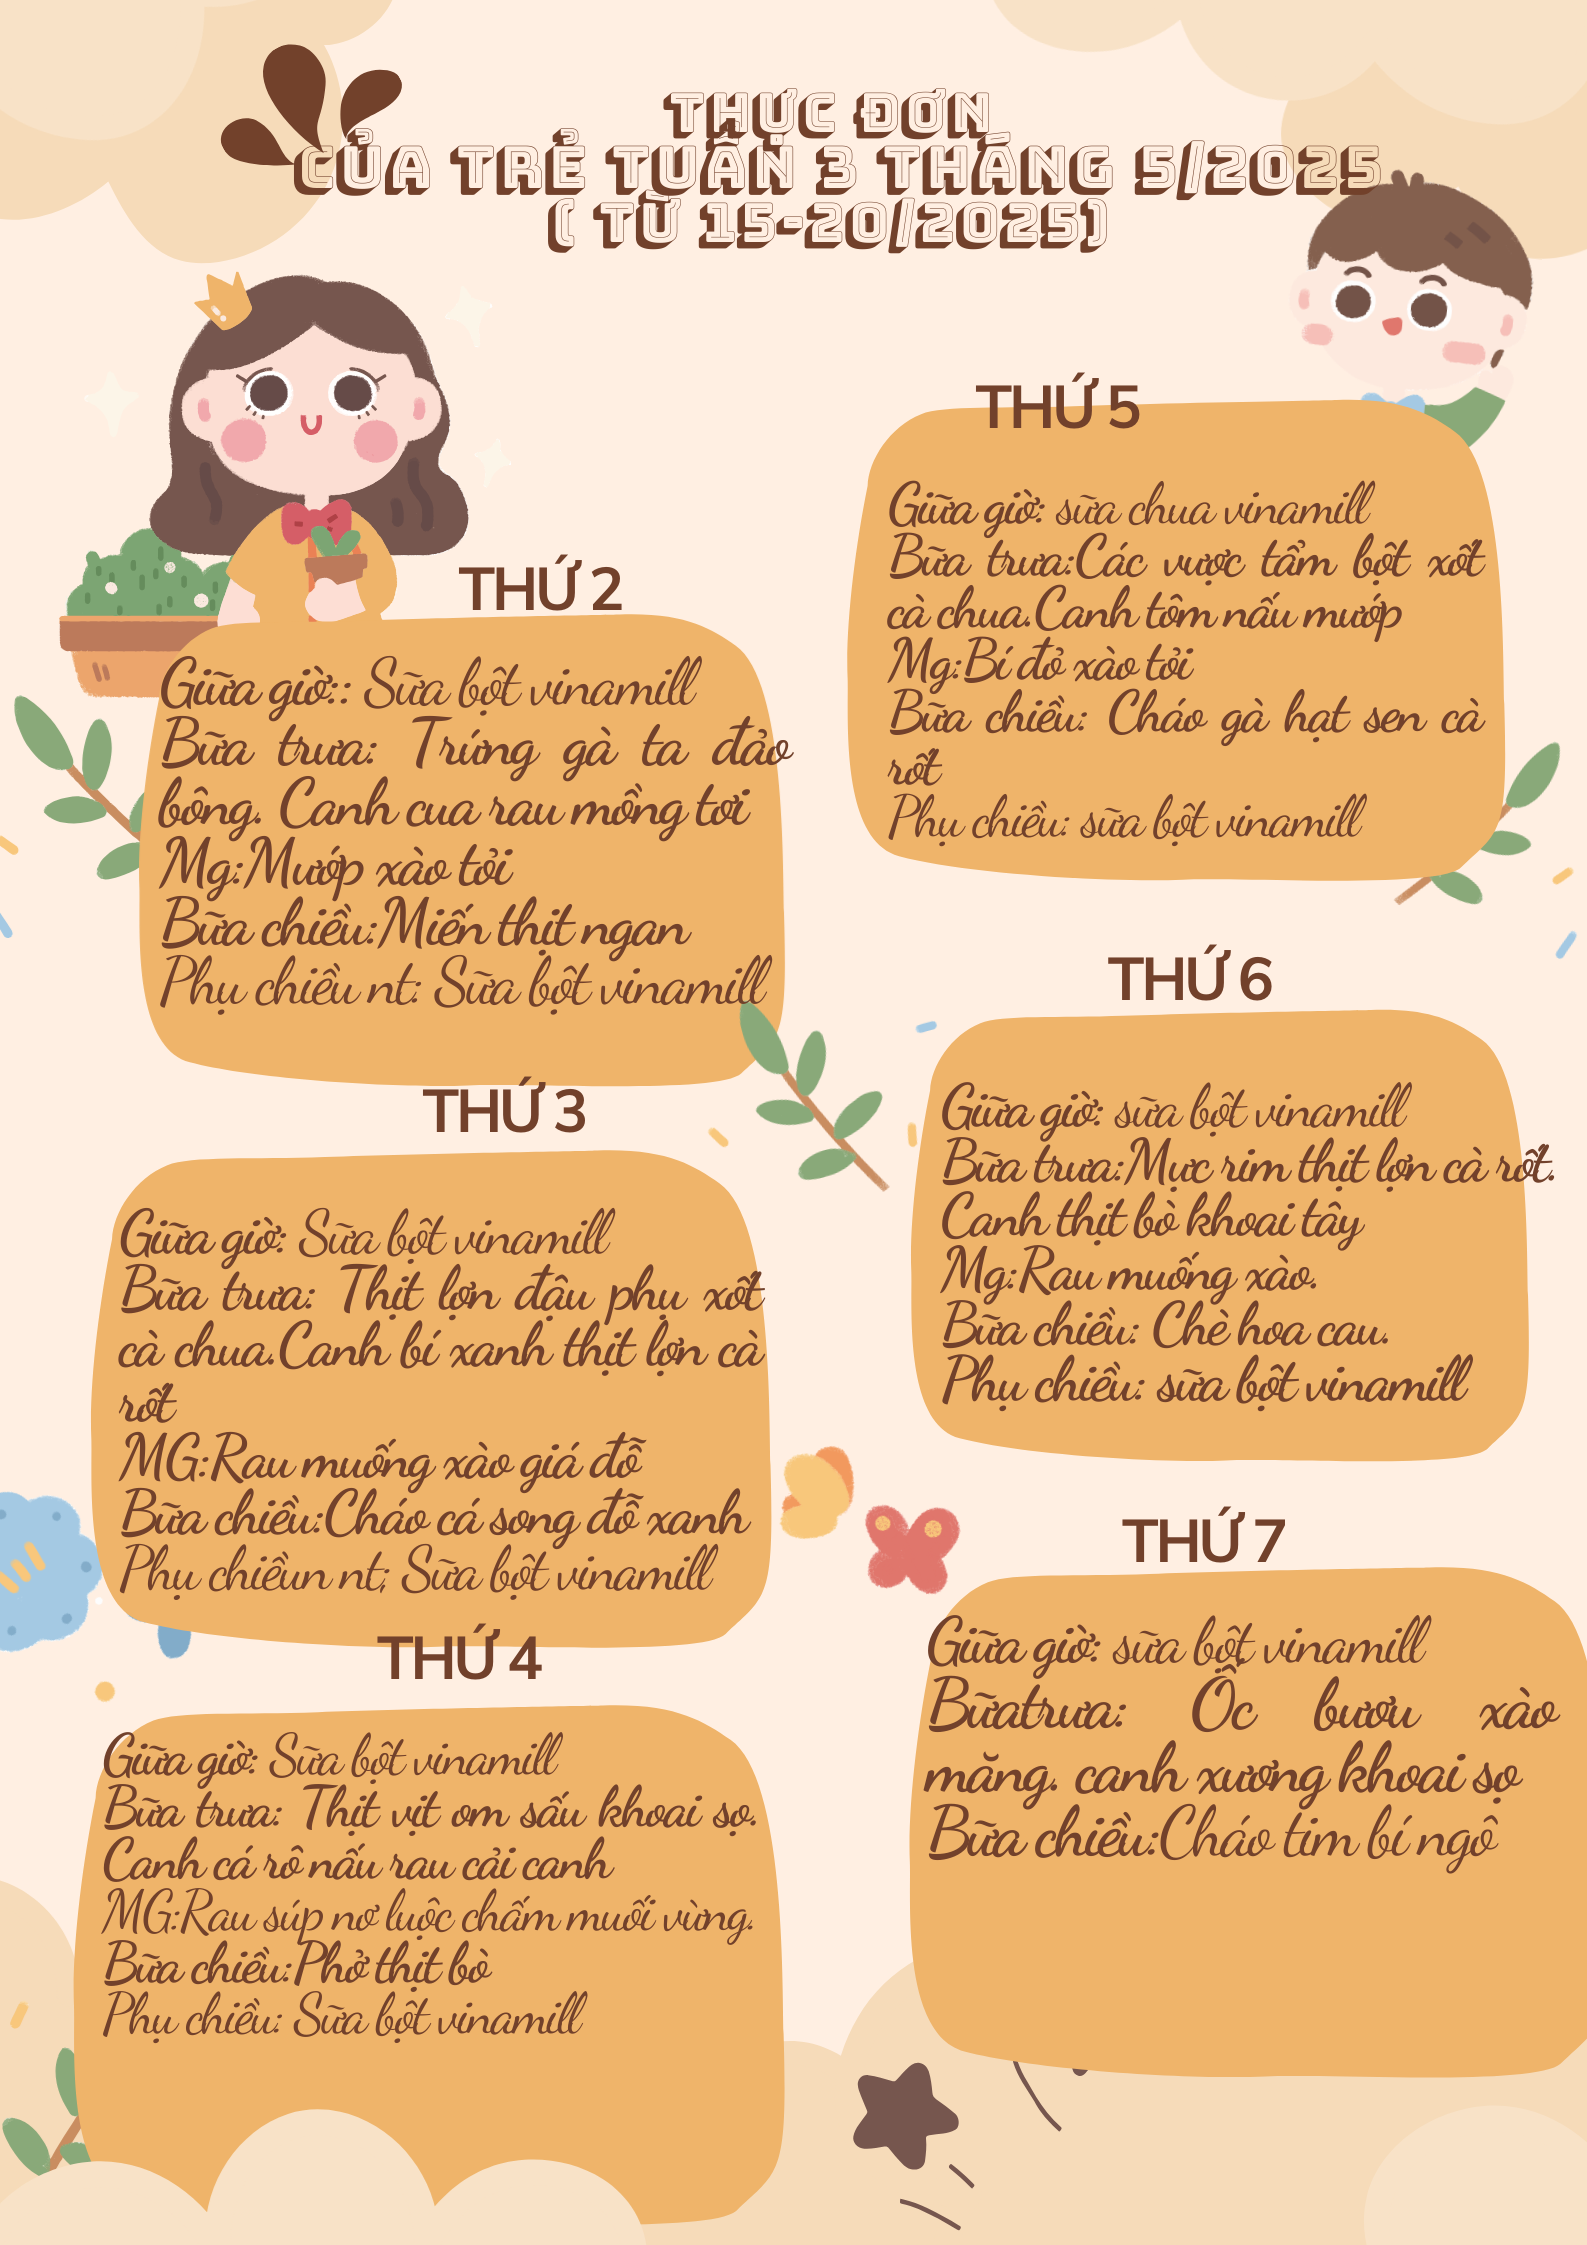 THỰC ĐƠN
CỦA TRẺ TUẦN 3 THÁNG 5/2025
( TỪ 15-20/2025)
THỨ 2
Giữa giờ:: Sữa bột vinamill
Bữa trưa: Trứng gà ta đảo
bông. Canh cua rau mồng tơi
Mg:Mướp xào tỏi
Bữa chiều:Miến thịt ngan
Phụ chiều nt: Sữa bột vinamill
THỨ 3
Giữa giờ: Sữa bột vinamill
Bữa trưa: Thịt lợn đậu phụ xốt
cà chua.Canh bí xanh thịt lợn cà
rốt
MG:Rau muống xào giá đỗ
Bữa chiều:Cháo cá song đỗ xanh
Phụ chiềun nt; Sữa bột vinamill
THỨ 4
Giữa giờ: Sữa bột vinamill
Bữa trưa: Thịt vịt om sấu khoai sọ.
Canh cá rô nấu rau cải canh
MG:Rau súp nơ luộc chấm muối vừng.
Bữa chiều:Phở thịt bò
Phụ chiều: Sữa bột vinamill
THỨ 5
Giữa giờ: sữa chua vinamill
Bữa trưa:Các vược tẩm bột xốt
cà chua.Canh tôm nấu mướp
Mg:Bí đỏ xào tỏi
Bữa chiều: Cháo gà hạt sen cà
rốt
Phụ chiều: sữa bột vinamill
THỨ 6
Giữa giờ: sữa bột vinamill
Bữa trưa:Mực rim thịt lợn cà rốt.
Canh thịt bò khoai tây
Mg:Rau muống xào.
Bữa chiều: Chè hoa cau.
Phụ chiều: sữa bột vinamill
THỨ 7
Giữa giờ: sữa bột vinamill
Bữatrưa: Ốc bươu xào
măng. canh xương khoai sọ
Bữa chiều:Cháo tim bí ngô